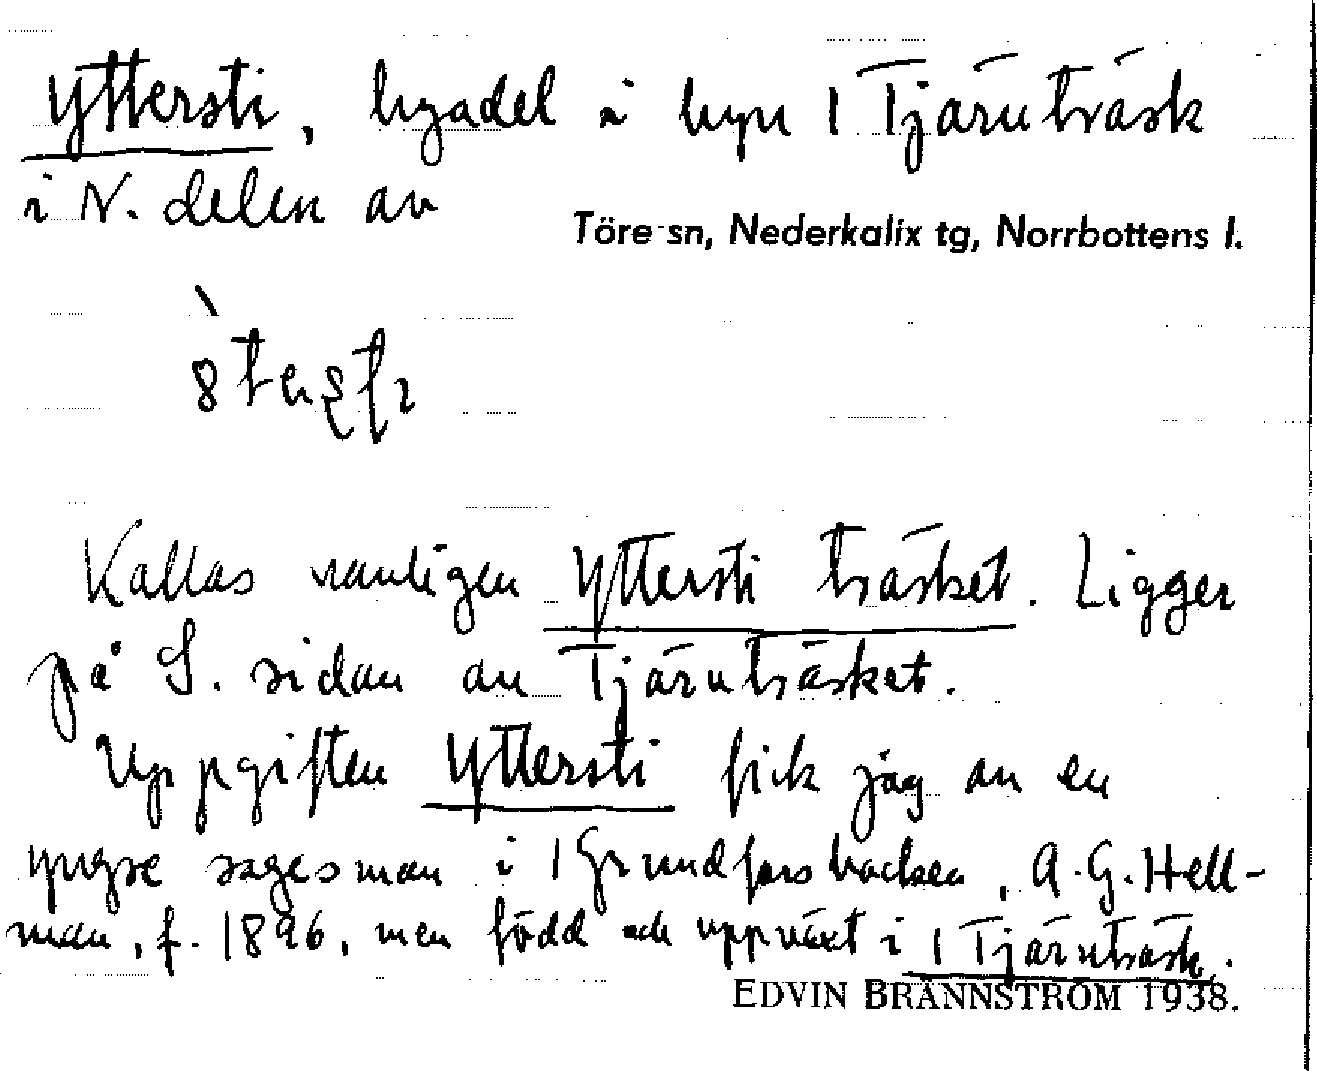 Yttersti, byadel i byn 1 Tjäruträsk
i N. delen av
Töre sn, Nederkalix tg, Norrbottens l.
Kallas vanligen Yttersti träsket. Ligger
på S. sidan av Tjäruträsket.
Uppgiften Yttersti fick jag av en
yngre sagesman i 1 Grundforsbacken, A.G. Hell-
man, f. 1896, men född och uppväxt i 1 Tjäruträsk.
EDVIN BRÄNNSTRÖM 1938.